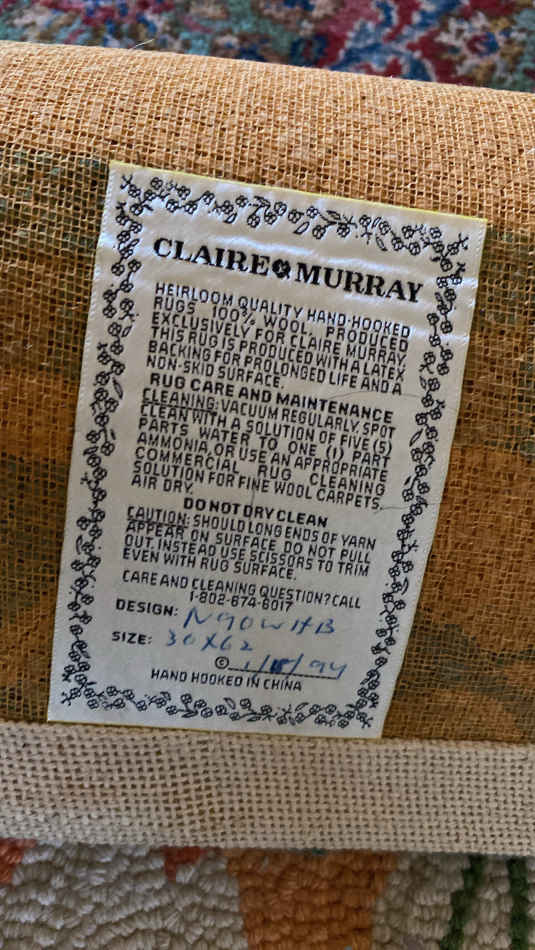 CLAIRE MURRAY
HEIRLOOM QUALITY HAND-HOOKED
RUGS 100% WOOL. PRODUCED
EXCLUSIVELY FOR CLAIRE MURRAY.
THIS RUG IS PRODUCED WITH A LATEX
BACKING FOR PROLONGED LIFE AND A
NON-SKID SURFACE.
RUG CARE AND MAINTENANCE
CLEANING: VACUUM REGULARLY. SPOT
CLEAN WITH A SOLUTION OF FIVE (5)
PARTS WATER TO ONE (1) PART
AMMONIA, OR USE AN APPROPRIATE
COMMERCIAL RUG CLEANING
SOLUTION FOR FINE WOOL CARPETS.
AIR DRY.
DO NOT DRY CLEAN
CAUTION: SHOULD LONG ENDS OF YARN
APPEAR ON SURFACE, DO NOT PULL
OUT. INSTEAD USE SCISSORS TO TRIM
EVEN WITH RUG SURFACE.
CARE AND CLEANING QUESTION? CALL
1-802-674-6017
DESIGN: N90WHB
SIZE: 30X62
©
HAND HOOKED IN CHINA